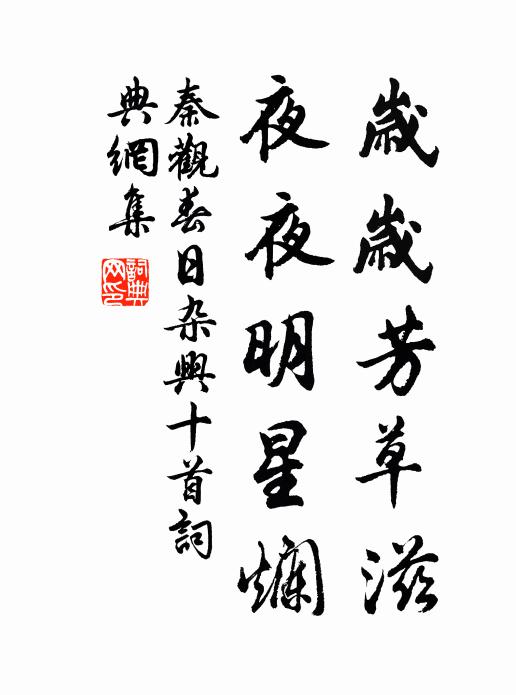 歲歲芳草滋
夜夜明星爛
秦觀春日杂興十首詞
典網集
詞典
网印